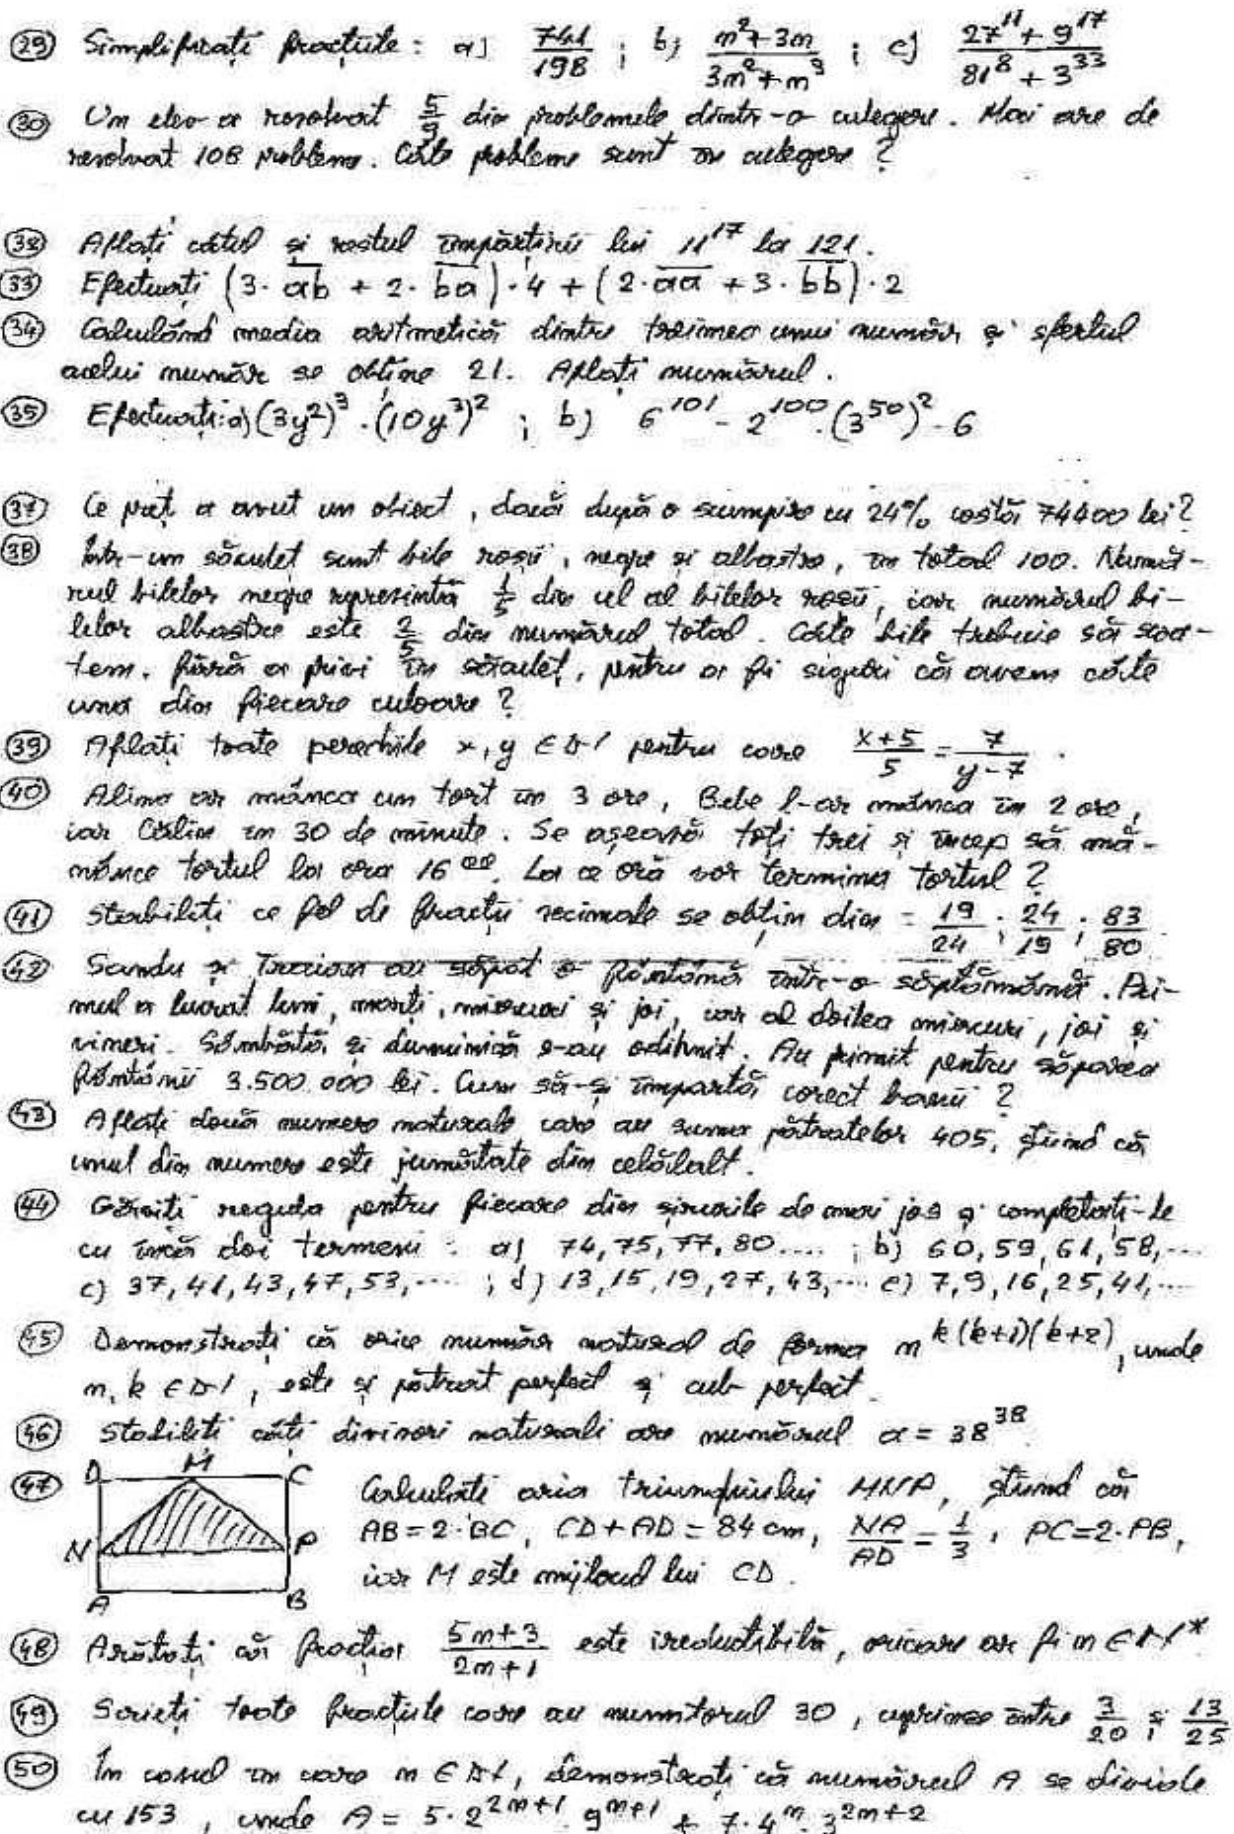 29 Simplificați fracțiile: a) 741/198 ; b) (n²+3n)/(3n²+n³) ; c) (27¹¹+9¹⁷)/(81⁸+3³³)
30 Un elev a rezolvat 5/9 din problemele dintr-o culegere. Mai are de
rezolvat 108 probleme. Câte probleme sunt în culegere ?
32 Aflați câtul și restul împărțirii lui 11¹⁷ la 121.
33 Efectuați (3·ab + 2·ba)·4 + (2·aa + 3·bb)·2
34 Calculând media aritmetică dintre treimea unui număr și sfertul
acelui număr se obține 21. Aflați numărul.
35 Efectuați: a) (3y²)³·(10y³)² ; b) 6¹⁰¹ - 2¹⁰⁰·(3⁵⁰)²·6
37 Ce preț a avut un obiect, dacă după o scumpire cu 24% costă 74400 lei?
38 Într-un săculeț sunt bile roșii, negre și albastre, în total 100. Numă-
rul bilelor negre reprezintă 1/5 din cel al bilelor roșii, iar numărul bi-
lelor albastre este 2/5 din numărul total. Câte bile trebuie să scoa-
tem, fără a privi în săculeț, pentru a fi siguri că avem câte
una din fiecare culoare ?
39 Aflați toate perechile x, y ∈ N pentru care (x+5)/5 = 7/(y-7).
40 Alina ar mânca un tort în 3 ore, Bebe l-ar mânca în 2 ore,
iar Călin în 30 de minute. Se așează toți trei și încep să mă-
nânce tortul la ora 16⁰⁰. La ce oră vor termina tortul ?
41 Stabiliți ce fel de fracții zecimale se obțin din: 19/24 ; 24/19 ; 83/80
42 Sandu și Traian au săpat o fântână într-o săptămână. Pri-
mul a lucrat luni, marți, miercuri și joi, iar al doilea miercuri, joi și
vineri. Sâmbătă și duminică s-au odihnit. Au primit pentru săparea
fântânii 3.500.000 lei. Cum să-și împartă corect banii ?
43 Aflați două numere naturale care au suma pătratelor 405, știind că
unul din numere este jumătate din celălalt.
44 Găsiți regula pentru fiecare din șirurile de mai jos și completați-le
cu încă doi termeni: a) 74, 75, 77, 80.... ; b) 60, 59, 61, 58,...
c) 37, 41, 43, 47, 53,.... ; d) 13, 15, 19, 27, 43,... e) 7, 9, 16, 25, 41,...
45 Demonstrați că orice număr natural de forma n^k(k+1)(k+2), unde
n, k ∈ N, este și pătrat perfect și cub perfect.
46 Stabiliți câți divizori naturali are numărul a = 38³⁸
47 D M C N P A B
Calculați aria triunghiului MNP, știind că
AB = 2·BC, CD + AD = 84 cm, NA/AD = 1/3, PC = 2·PB,
iar M este mijlocul lui CD.
48 Arătați că fracția (5n+3)/(2n+1) este ireductibilă, oricare ar fi n ∈ N*
49 Scrieți toate fracțiile care au numitorul 30, cuprinse între 3/20 și 13/25
50 În cazul în care n ∈ N, demonstrați că numărul A se divide
cu 153, unde A = 5·2²ⁿ⁺¹·9ⁿ⁺¹ + 7·4ⁿ·3²ⁿ⁺²